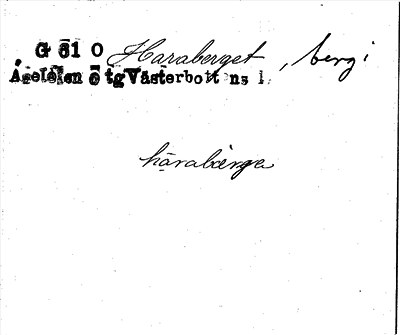 G 31 O Haraberget, berg i
Åselelen s tg Västerbottens l.
härabärge